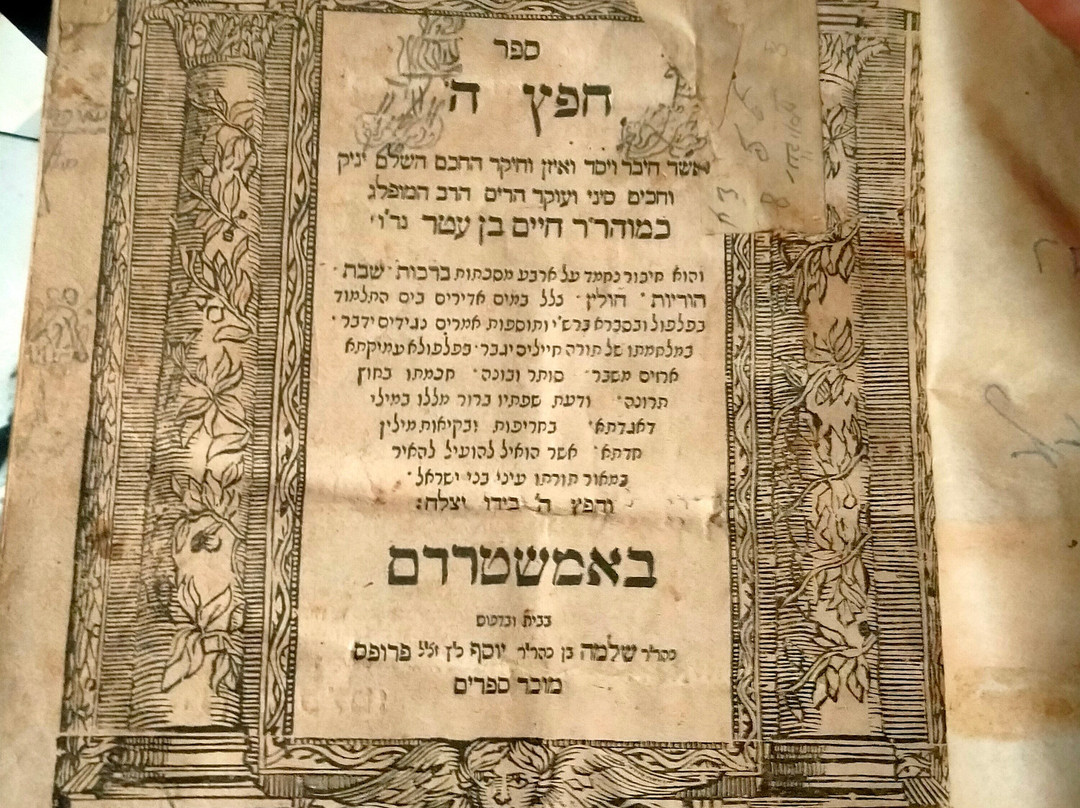 ספר
חפץ ה'
אשר חיבר ויסד ואיזן וחיקר החכם השלם יניק
וחכים סיני ועוקר הרים הרב המופלג
כמוהר״ר חיים בן עטר נר״ו
והוא חיבור נחמד על ארבע מסכתות ברכות שבת
הוריות חולין צלל במים אדירים בים התלמוד
בפלפול ובסברא ברש״י ותוספות אמרים נגידים ידבר
במלחמתו של תורה חיילים יגבר בפלפולא עמיקתא
ארזים משבר סותר ובונה חכמתו בחוץ
תרונה ודעת שפתיו ברור מללו במילי
דאגדתא בחריפות ובקיאות מילין
חדתא אשר הואיל להועיל להאיר
במאור תורתו עיני בני ישראל
וחפץ ה' בידו יצלח:
באמשטרדם
בבית ובדפוס
כהר״ר שלמה בן כהר״ר יוסף כ״ץ זצ״ל פרופס
מוכר ספרים